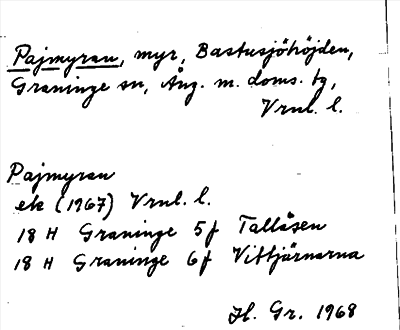 Pajmyran, myr, Bastusjöhöjden,
Graninge sn, Ång. m. doms. tg,
Vrnl. l.
Pajmyran
ek (1967) Vrnl. l.
18 H Graninge 5f Tallåsen
18 H Graninge 6f Vittjärnarna
Hl. Gr. 1968